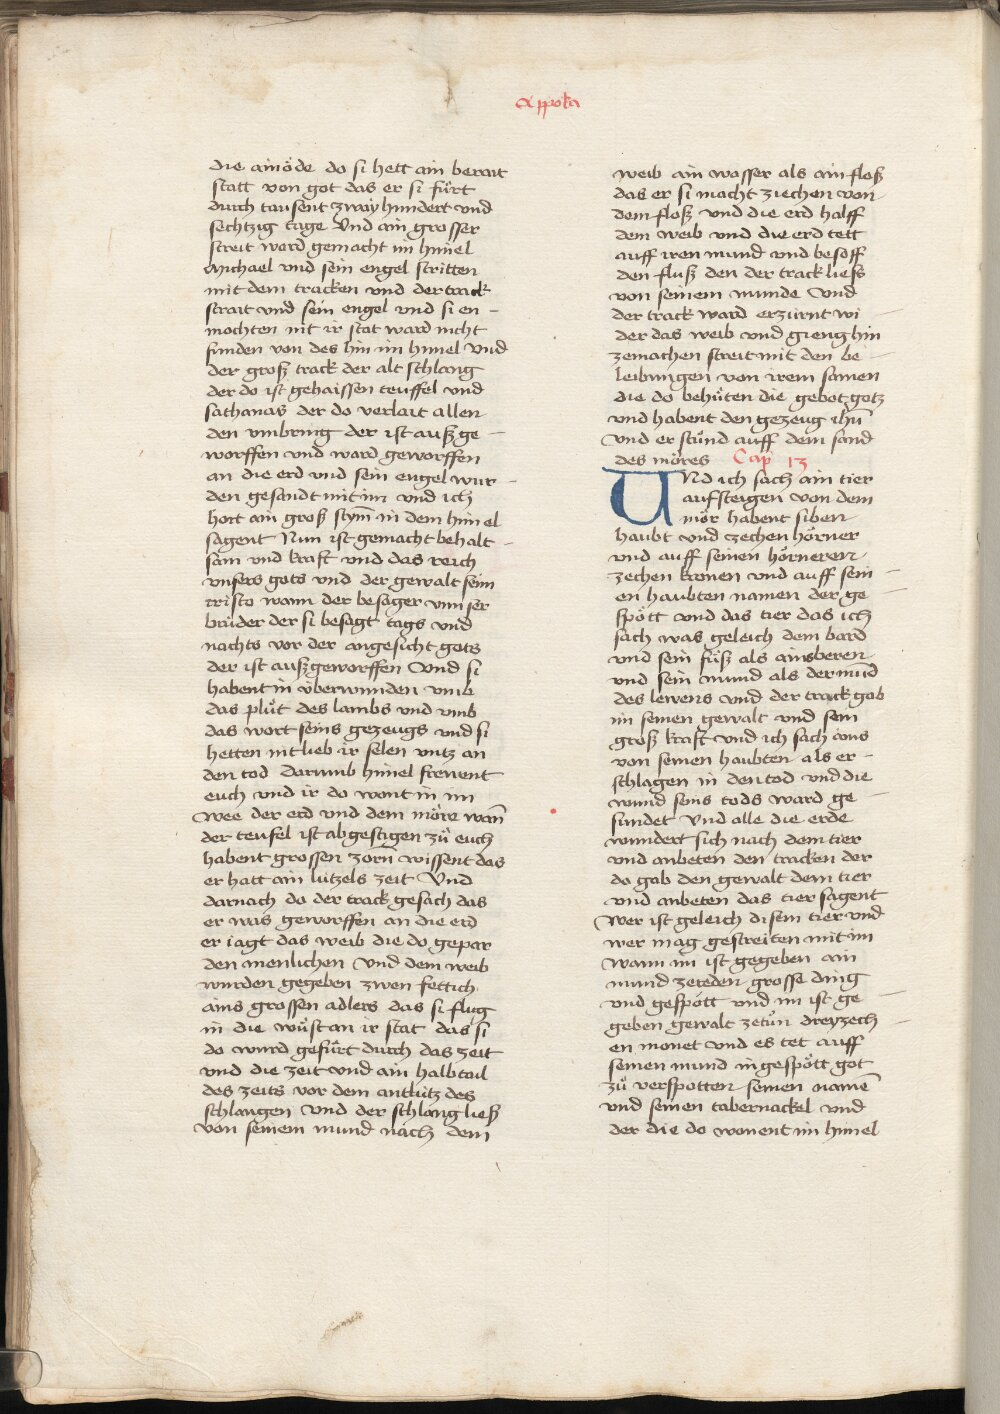 Appoka
die ainöde do si hett ain berait
statt von got das er si fürt
durch tausent zway hundert vnd
sechtzig tage Vnd ain grosser
streit ward gemacht im himel
Michael vnd sein engel stritten
mit dem tracken vnd der track
strait vnd sein engel vnd si en –
mochten nit ir stat ward nicht
funden von des hin im himel Vnd
der groß track der alt schlang
der do ist gehaissen teuffel vnd
sathanas der do verlait allen
den vmbring der ist auß ge –
worffen vnd ward geworffen
an die erd vnd sein engel wur –
den gesandt mit im vnd ich
hort ain groß stym̄ in dem himel
sagent Nun ist gemacht behalt –
sam vnd kraft vnd das reich
vnsers gots vnd der gewalt seim
cristo wann der besager vnnser
brüder der si besagt tags vnd
nachts vor der angesicht gots
der ist außgeworffen Vnd si
habent in überwunden vmb
das plůt des lambs vnd vmb
das wort seins gezeugs vnd si
hetten nit lieb ir selen vntz an
den tod Darumb himel frewent
euch vnd ir do wont in im
wee der erd vnd dem möre wan̄
der teufel ist abgestigen zů euch
habent grossen zorn wissent das
er hatt ain lützels zeit Vnd
darnach do der track gesach das
er was geworffen an die erd
er iagt das weib die do gepar
den menlichen Vnd dem weib
wurden gegeben zwen fettich
ains grossen adlers das si flug
in die wůst an ir stat das si
do wurd gefürt durch das zeit
vnd die zeit vnd ain halbtail
des zeits vor dem antlütz des
schlangen Vnd der schlang ließ
von seinem mund nach dem
weib ain wasser als ain floß
das er si macht ziechen von
dem floß vnd die erd halff
dem weib vnd die erd tett
auff iren mund vnd besoff
den fluß den der track liess
von seinem munde Vnd
der track ward erzürnt wi –
der das weib vnd gieng hin
zemachen streit mit den be –
leibungen von irem samen
die do behüten die gebot gotz
vnd habent den gezeug ihū
Vnd er stůnd auff dem sand
des möres Cap 13
Vnd ich sach ain tier
aufsteigen von dem
mör habent siben
haubt vnd zechen hörner
vnd auff seinen hörneren
zechen kronen vnd auff sein –
en haubten namen der ge –
spött vnd das tier das ich
sach was geleich dem bard
vnd sein füß als ains beren
vnd sein mund als der mūd
des lewens vnd der track gab
im seinen gewalt vnd sein
groß kraft vnd ich sach ains
von seinen haubten als er –
schlagen in den tod vnd die
wund seins tods ward ge –
sundet Vnd alle die erde
wundert sich nach dem tier
vnd anbeten den tracken der
do gab den gewalt dem tier
vnd anbeten das tier sagent
Wer ist geleich disem tier vnd
wer mag gestreiten mit im
wann im ist gegeben ain
mund zereden grosse ding
vnd gespött vnd im ist ge –
geben gewalt zetůn dreyzech
en monet vnd es tet auff
seinen mund in gespött got
zů verspotten seinen namē
vnd seinen tabernackel vnd
der die do wonent im himel